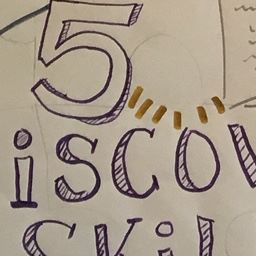 5
iSCOV
SKil